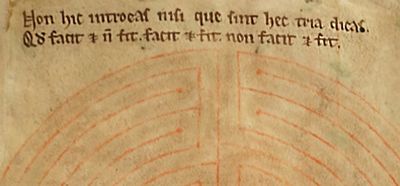 Non hic introeas nisi que sint hec tria dicas.
Qđ facit ⁊ ñ fit. facit ⁊ fit. non facit ⁊ fit.